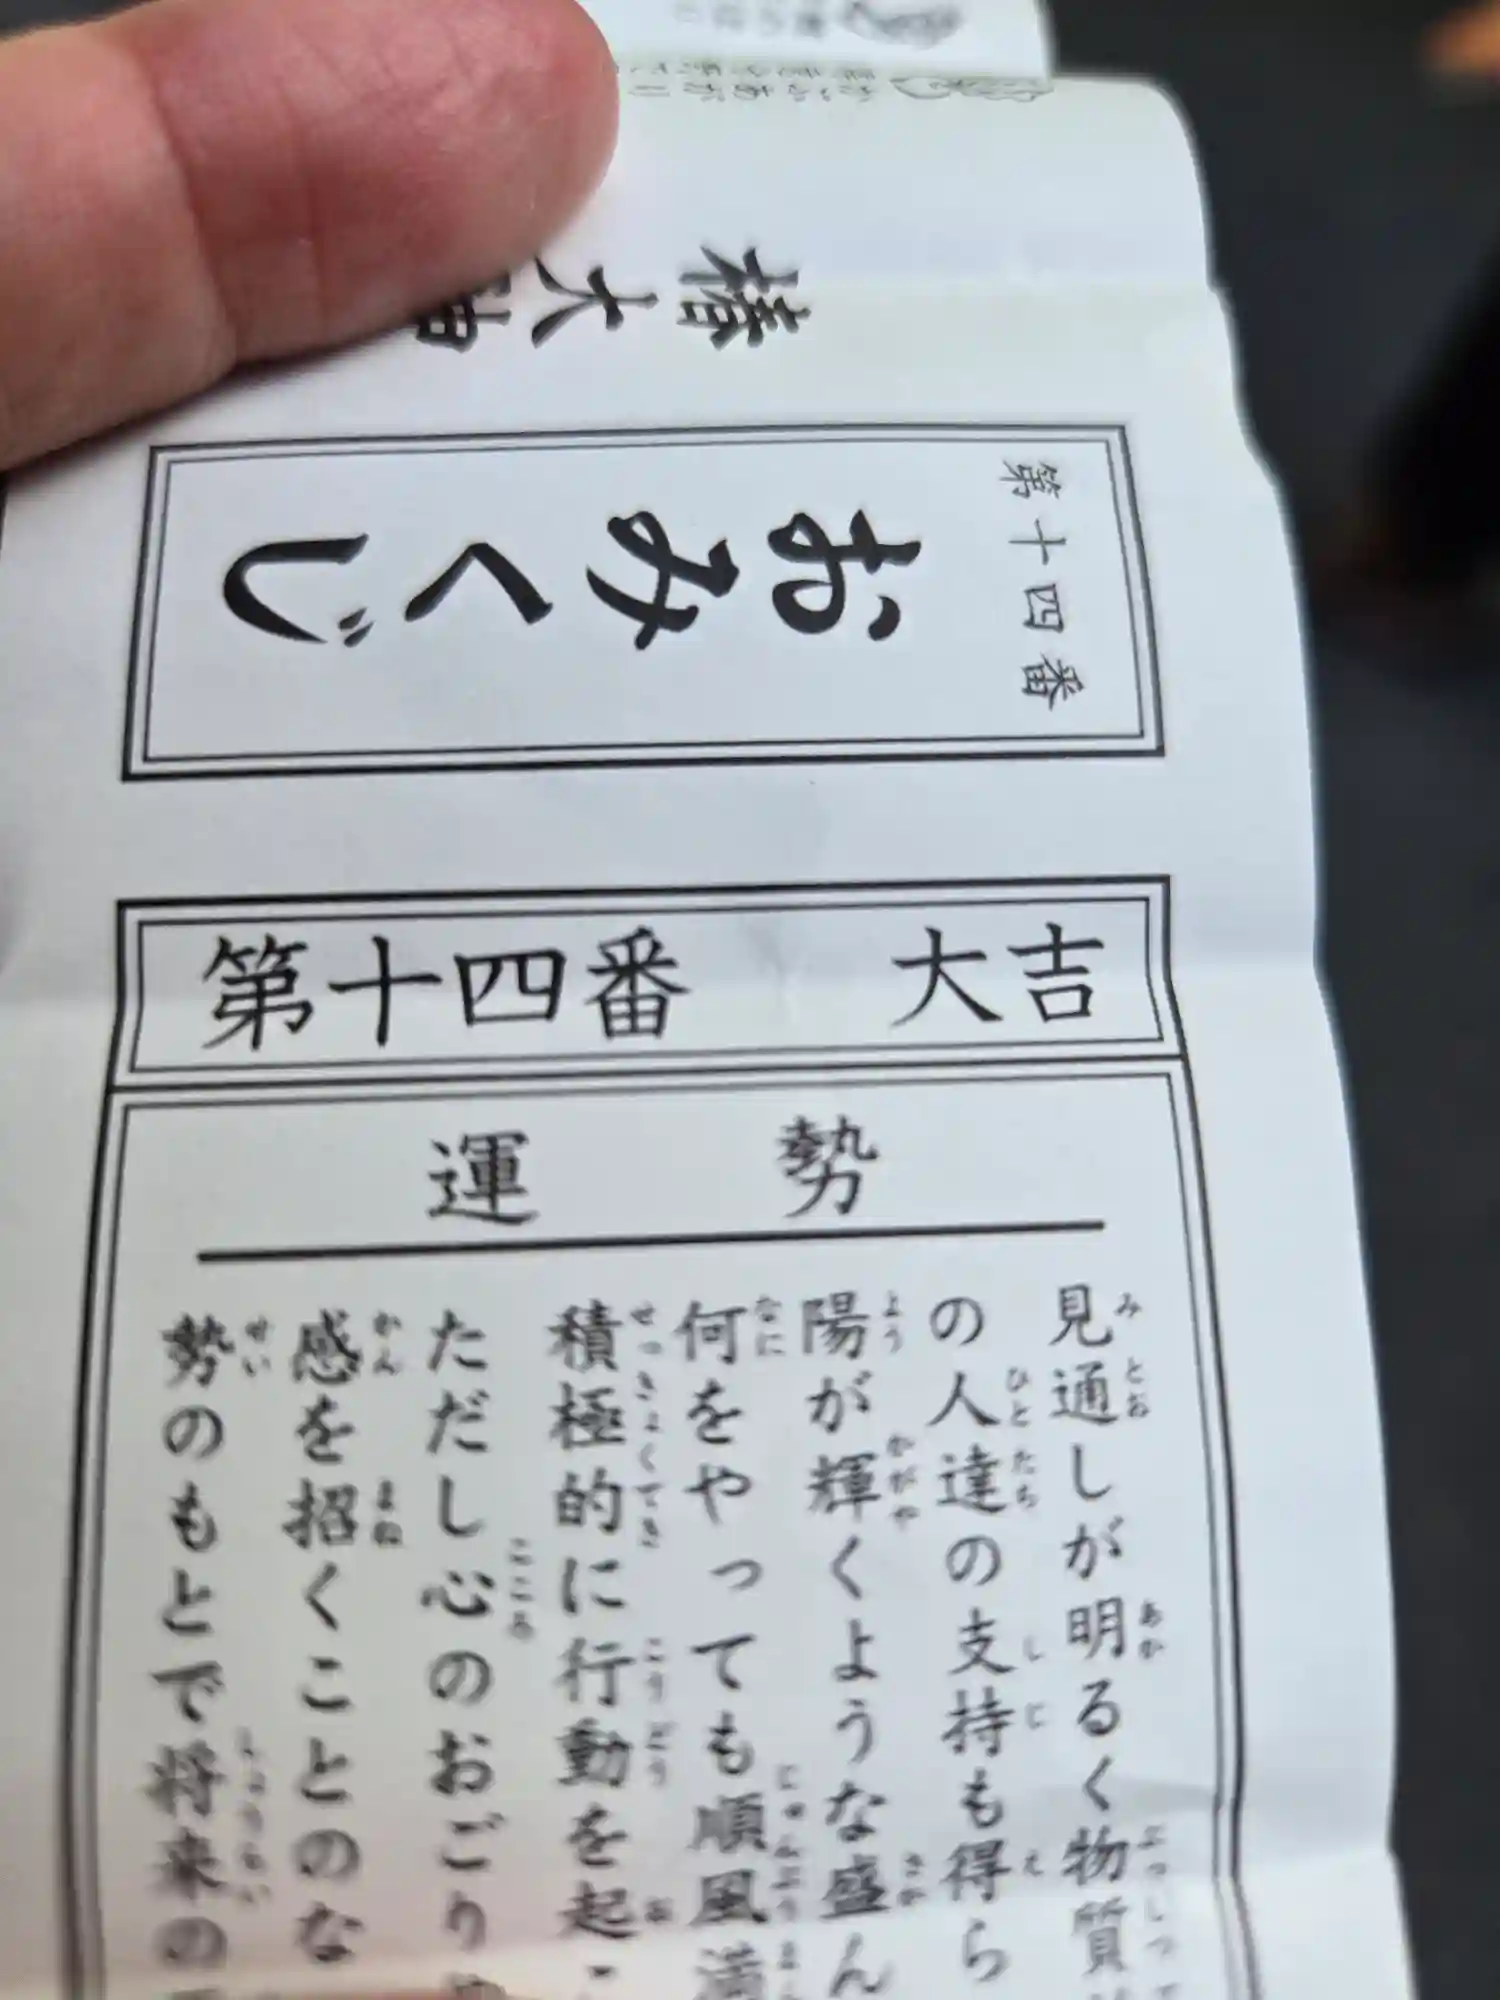 椿大神
第十四番
おみくじ
第十四番 大吉
運勢
見通しが明るく物質
の人達の支持も得ら
陽が輝くような盛ん
何をやっても順風満
積極的に行動を起
ただし心のおごり
感を招くことのな
勢のもとで将来の